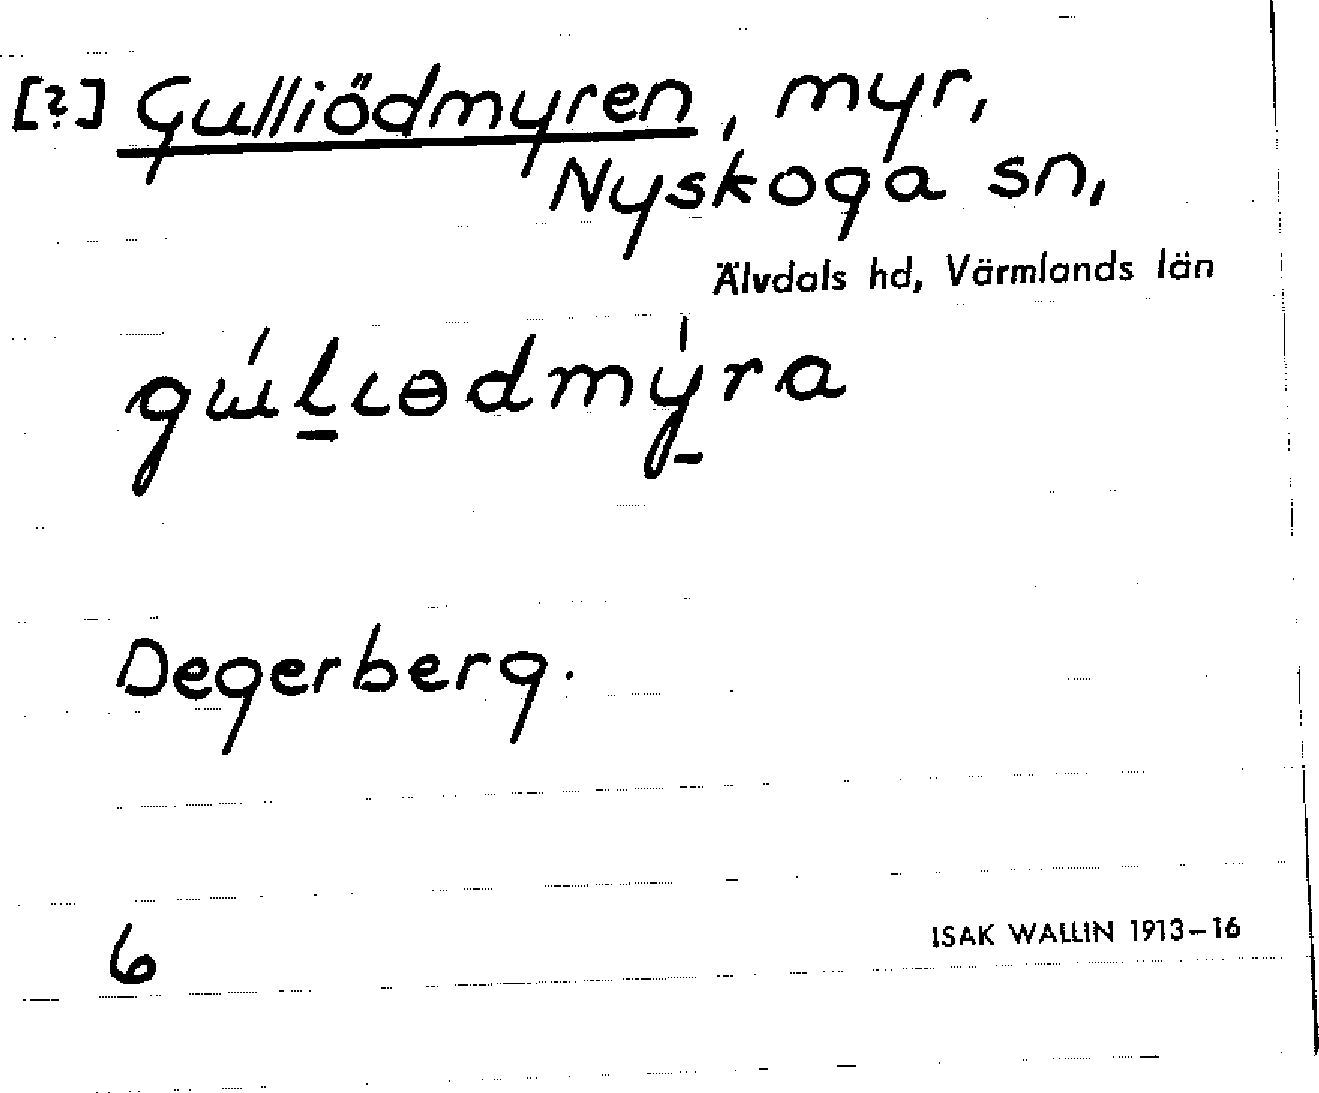 [?] Gulliödmyren, myr,
Nyskoga sn,
Älvdals hd, Värmlands län
gɯ́l̠ɩɵdmý̠ra
Degerberg.
6
ISAK WALLIN 1913–16